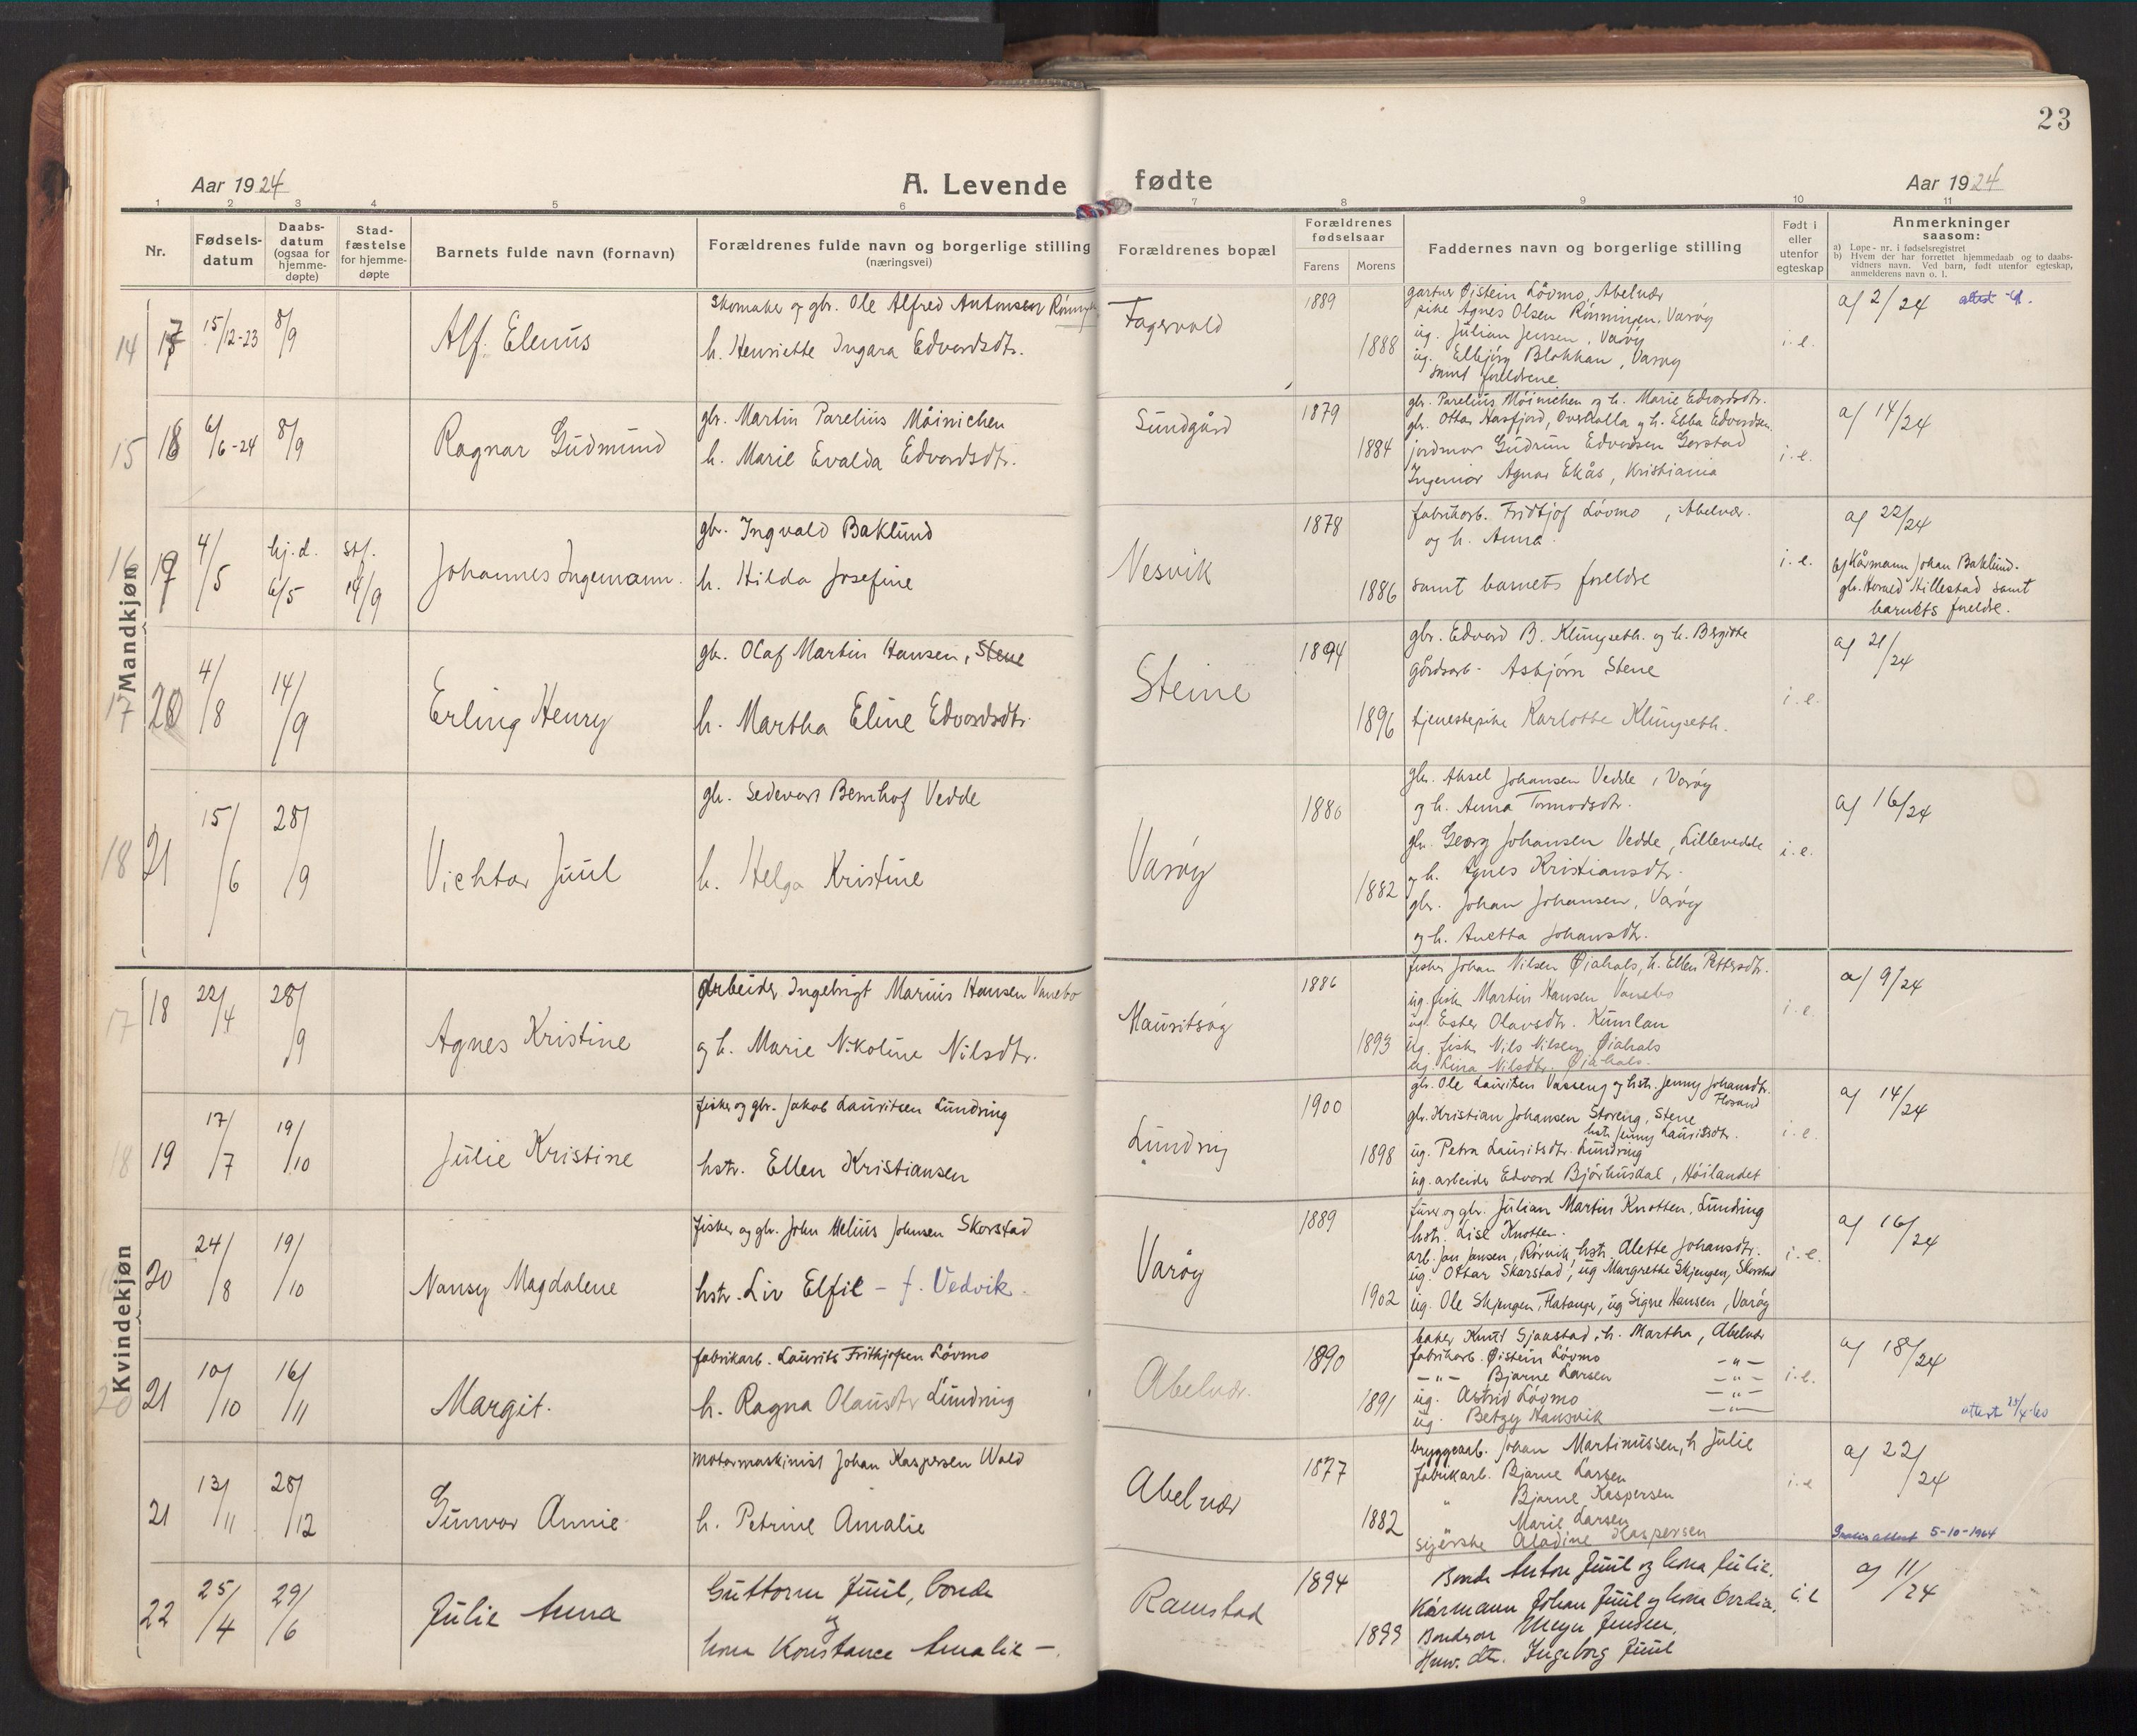 23
Aar 1924
A. Levende fødte
Aar 1924
1 2 3 4 5 6 7 8 9 10 11
Nr.
Fødsels-
datum
Daabs-
datum
(ogsaa for
hjemme-
døpte)
Stad-
fæstelse
for hjemme-
døpte
Barnets fulde navn (fornavn)
Forældrenes fulde navn og borgerlige stilling
(næringsvei)
Forældrenes bopæl
Forældrenes
fødselsaar
Farens Morens
Faddernes navn og borgerlige stilling
Født i
eller
utenfor
egteskap
Anmerkninger
saasom:
a) Løpe-nr. i fødselsregistret
b) Hvem der har forrettet hjemmedaab og to daabs-
vidners navn. Ved barn, født utenfor egteskap,
anmelderens navn o. l.
Mandkjøn
14 17 15/12-23 8/9
Alf Elenus
Skomaker og gbr. Ole Alfred Antonsen
h. Henriette Ingara Edvardsdtr.
Fagervold
1889
1888
gartner Øistein Lövmo, Abelvær
pike Agnes Olsen Rönningen, Varöy
ug. Julian Jensen, Varöy
ug. Elbjörg Blakkan, Varöy
samt foreldrene
i. e.
a) 2/24 attest
15 18 6/6-24 8/9
Ragnar Gudmund
gbr. Martin Parelius Möinichen
h. Marie Evalda Edvardsdtr.
Sundgård
1879
1884
gbr. Parelius Möinichen og h. Marie Edvardsdtr.
gbr. Ottar Hasfjord, Overhalla og h. Ebba Edvardsen
jordmor Gudrun Edvardsen Gorstad
Ingeniør Agnar Ekås, Kristiania
i. e.
a) 14/24
16 19 4/5 hj.d. 6/5 stf. 14/9
Johannes Ingemann.
gbr. Ingvald Baklund
h. Hilda Josefine
Nesvik
1878
1886
fabrikarb. Fridtjof Lövmo, Abelvær.
og h. Anna.
samt barnets foreldre
i. e.
a) 22/24
b) Kårmann Johan Baklund.
gbr. Harald Hillestad samt
barnets foreldre.
17 20 4/8 14/9
Erling Henry
gbr. Olaf Martin Hansen, Stene
h. Martha Eline Edvardsdtr.
Steine
1894
1896
gbr. Edvard B. Klungseth. og h. Bergitte
gårdsarb. Asbjörn Stene
tjenestepike Karlotte Klungseth.
i. e.
a) 21/24
18 21 15/6 28/9
Vichtor Juul
gbr. Sedevart Bernhof Vedde
h. Helga Kristine
Varöy
1880
1882
gbr. Aksel Johansen Vedde, Varöy
og h. Anna Tormodsdtr.
gbr. Georg Johansen Vedde, Lillevedde
og h. Agnes Kristiansdtr.
gbr. Johan Johansen, Varöy
og h. Anetta Johansdtr.
i. e.
a) 16/24
Kvindekjøn
17 18 22/4 28/9
Agnes Kristine
Arbeider Ingebrigt Marius Hansen Vanebo
og h. Marie Nikoline Nilsdtr.
Mauritsög
1886
1893
fisker Johan Nilsen Øiahals, h. Ellen Pettersdtr.
ug. fisk. Martin Hansen Vanebo
ug. Ester Olavsdtr. Kumlan
ug. fisk. Nils Nilsen Øiahals
ug. Lina Nilsdtr. Øiahals.
i. e.
a) 9/24
18 19 17/7 19/10
Julie Kristine
fisker og gbr. Jakob Lauritsen Lundring
hstr. Ellen Kristiansen
Lundring
1900
1898
gbr. Ole Lauritsen Vasseng og hstr. Jenny Johansdtr.
Flosand
gbr. Kristian Johansen Storeng, Stene
hstr. Jenny Lauritsdtr.
ug. Petra Lauritsdtr. Lundring
ug. arbeider Edvard Bjørhusdal, Höilandet
i. e.
a) 14/24
20 24/8 19/10
Nansy Magdalene
fisker og gbr. John Melius Johnsen Skorstad
hstr. Liv Elfie - f. Vedvik.
Varöy
1889
1902
fører og gbr. Julian Martin Knotten, Lundring
hstr. Lise Knotten.
arb. Jan Jansen, Rörvik, hstr. Alette Johansdtr.
ug. Ottar Skarstad, ug Margrethe Skjengen, Skorstad
ug. Ole Skjengen, Flatanger, ug Signe Hansen, Varöy
i. e.
a) 16/24
20 21 10/10 16/11
Margit.
fabrikarb. Laurits Frithjofsen Lövmo
h. Ragna Olausdtr Lundring
Abelvær.
1890
1891
baker Knut Sjaastad, h. Martha, Abelvær
fabrikarb. Øistein Lövmo -"-
-"- Bjarne Larsen -"-
ug. Astrid Lövmo -"-
ug. Betzy Hansvik -"-
i. e.
a) 18/24
attest 25/4-60
21 13/11 28/12
Gunvor Annie
motormaskinist Johan Kaspersen Wold
h. Petrine Amalie
Abelvær
1877
1882
bryggearb. Johan Martinussen, h Julie
fabrikarb. Bjarne Larsen
" Bjarne Kaspersen
Marie Larsen
syerske Aladine Kaspersen
i. e
a) 22/24
attest 5-10-1964
22 25/4 29/6
Julie Anna
Guttorm Juul, bonde
og
kona Konstance Amalie -.
Ramstad
1894
1899
Bonde Anton Juul og kona Julie.
Kårmann Johan Juul og kona Ovedia.
Bondesøn Meyer Jensen.
Husm. dtr. Ingeborg Juul
i. e
a) 11/24